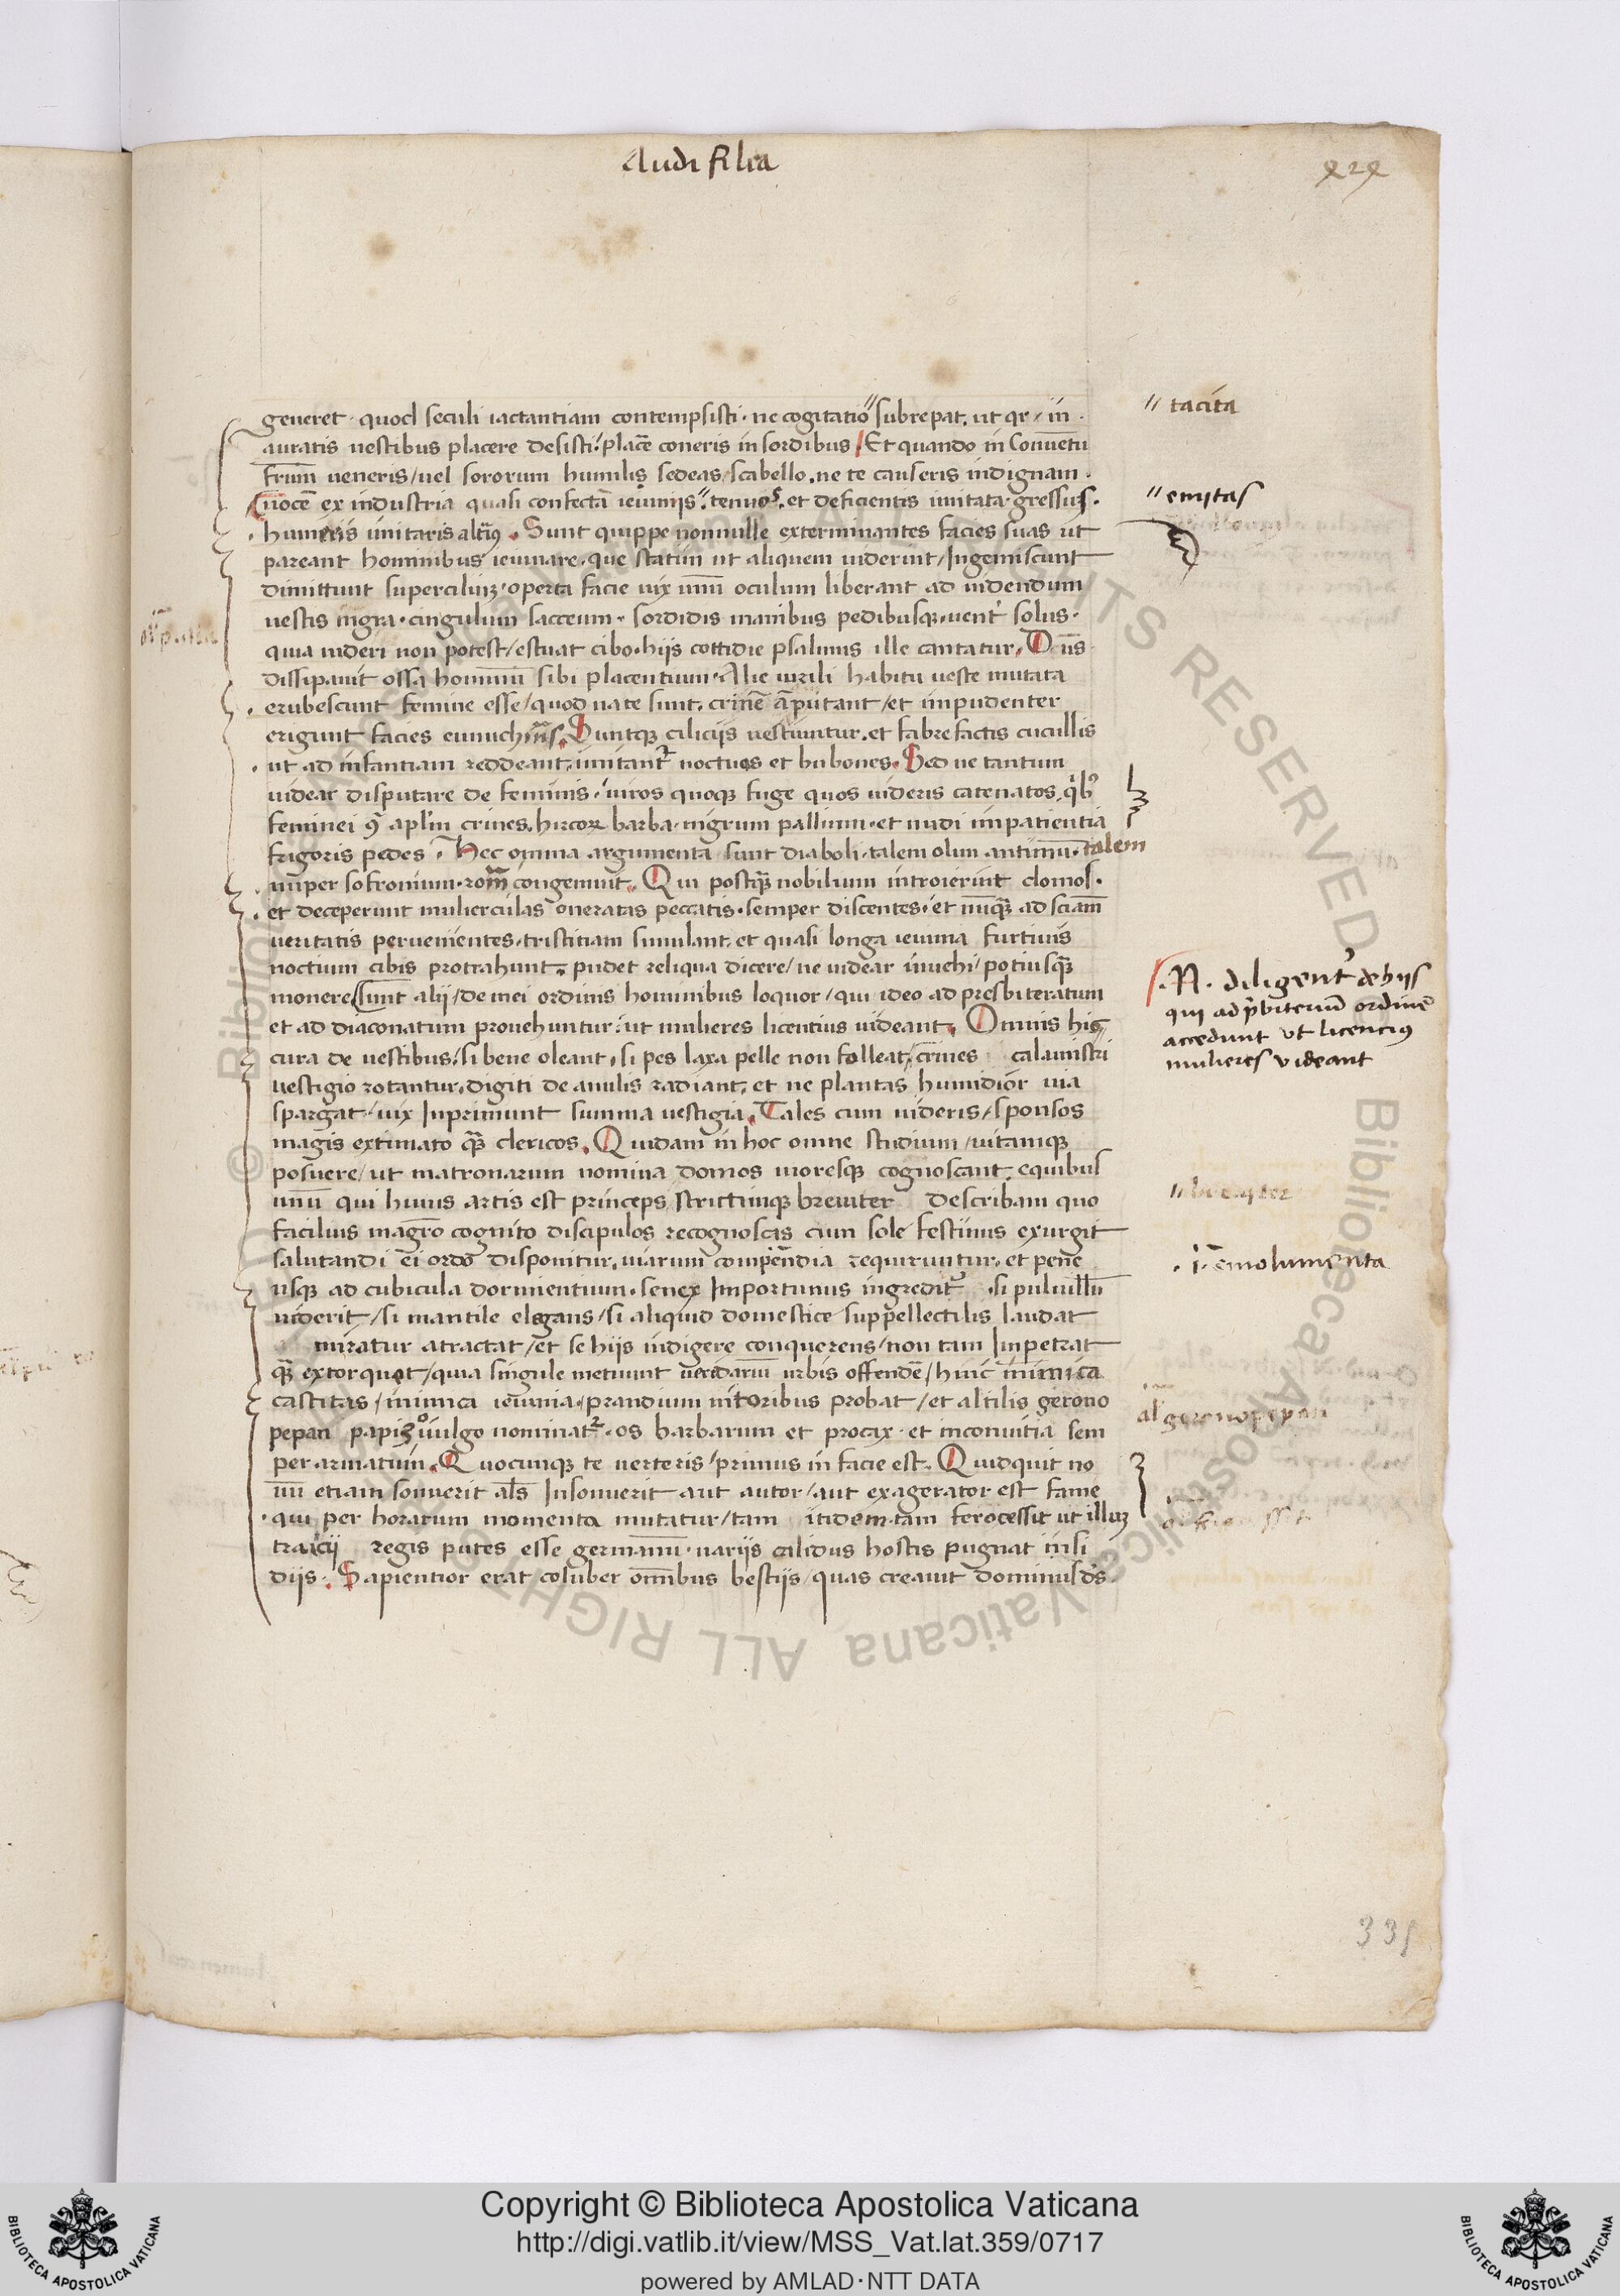 Audi filia
424
generet · quod seculi iactantiam contempsisti · ne cogitatio subrepat, ut qr / in ·
// tacita
auratis uestibus placere desisti / placē coneris in sordibus / Et quando in Conuētu
frūm ueneris / uel sororum humilis sedeas / scabello . ne te causeris indignam ·
uocē ex industria quasi confectā ieiuniis // tenuos . et deficientis imitata gressus ·
// enitas
humeris imitaris altius . Sunt quippe nonnulle exterminantes facies suas ut
pareant hominibus ieiunare . que statim ut aliquem uiderint / Ingemiscunt
dimittunt supercilium · operta facie uix unū oculum liberant ad uidendum
uestis nigra · cingulum sacceum · sordidis manibus pedibusq; uent solus ·
quia uideri non potest / estuat cibo · hiis cottidie psalmus ille cantatur . Dns
dissipauit ossa hominū sibi placentium · Alie uirili habitu ueste mutata
erubescunt femine esse / quod nate sunt . crinē āputant / et impudenter
erigunt facies eunuchinas . Suntq; ciliciis uestiuntur . et fabrefactis cucullis
ut ad infantiam reddeant / imitantr noctuos et bubones . Sed ne tantum
uidear disputare de feminis / uiros quoq; fuge quos uideris catenatos, qb
feminei 9 aplm crines, hircorum barba · nigrum pallium · et nudi impatientia
frigoris pedes . Hec omnia argumenta sunt diaboli · talem olim antimū · talem
nuper sofronium · roma congemuit . Qui postq̄ nobilium introierint domos ·
et deceperunt mulierculas oneratas peccatis · semper discentes · et nūq̄ ad sciam
ueritatis peruenientes / tristitiam simulant · et quasi longa ieiunia furtiuis
noctium cibis protrahunt . pudet reliqua dicere / ne uidear inuehi / potiusq̄
monere Sunt alij / de mei ordinis hominibus loquor / qui ideo ad presbiteratum
et ad diaconatum prouehuntur / ut mulieres licentius uideant . Omnis his
· N · diligent de hijs
qui ad prbiterium ordinē
accedunt vt licencius
mulieres videant
cura de uestibus / si bene oleant, si pes laxa pelle non folleat / crines calamistri
uestigio rotantur, digiti de anulis radiant, et ne plantas humidior uia
spargat / uix Inprimunt summa uestigia . Tales cum uideris / sponsos
magis extimato q̄ clericos . Quidam in hoc omne studium / uitamq;
posuere / ut matronarum nomina domos moresq; cognoscant, equibus
unū qui huius artis est princeps strictimq; breuiter describam quo
facilius magrō cognito discipulos recognoscas cum sole festinus exurgit
salutandi ei ordo disponitur, uiarum compendia requiruntur, et pene
· i · emolumenta
usq; ad cubicula dormientium . senex Importunus ingreditr . si puluillū
uiderit / si mantile elegans / si aliquid domestice suppellectilis laudat
miratur atractat / et se hijs indigere conquerens / non tam Impetrat
q̄ extorquet / quia singule metuunt ueredariū urbis offendē / huic inimica
castitas / inimica ieiunia / prandium nitoribus probat / et altilis gerono
al geronopepan
pepan papizo uulgo nominatr . os barbarum et procax · et in conuitia sem
per armatum . Quocunq; te uerteris / primus in facie est . Quidquit no
uū etiam sonuerit als Insonuerit aut autor / aut exagerator est fame
qui per horarum momenta mutatur / tam itidem tam ferocessit ut illum
traicij regis putes esse germanū · uariis calidus hostis pugnat insi
dijs . Sapientior erat coluber omnibus bestijs / quas creauit dominus ds .
335
Copyright © Biblioteca Apostolica Vaticana
http://digi.vatlib.it/view/MSS_Vat.lat.359/0717
powered by AMLAD·NTT DATA
BIBLIOTECA APOSTOLICA VATICANA
BIBLIOTECA APOSTOLICA VATICANA